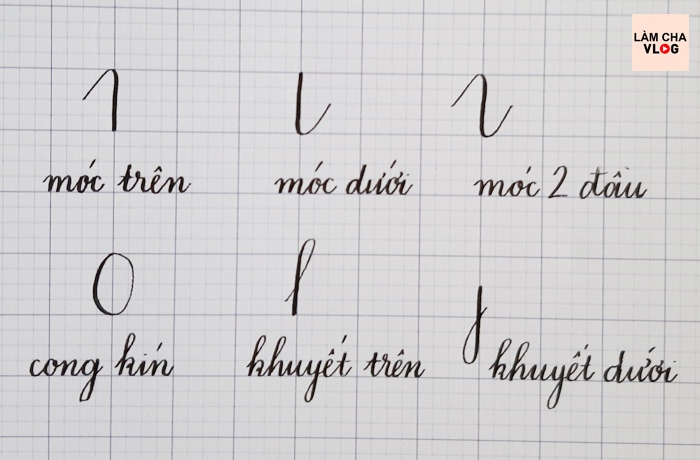 LÀM CHA
VLOG
móc trên
móc dưới
móc 2 đầu
cong kín
khuyết trên
khuyết dưới